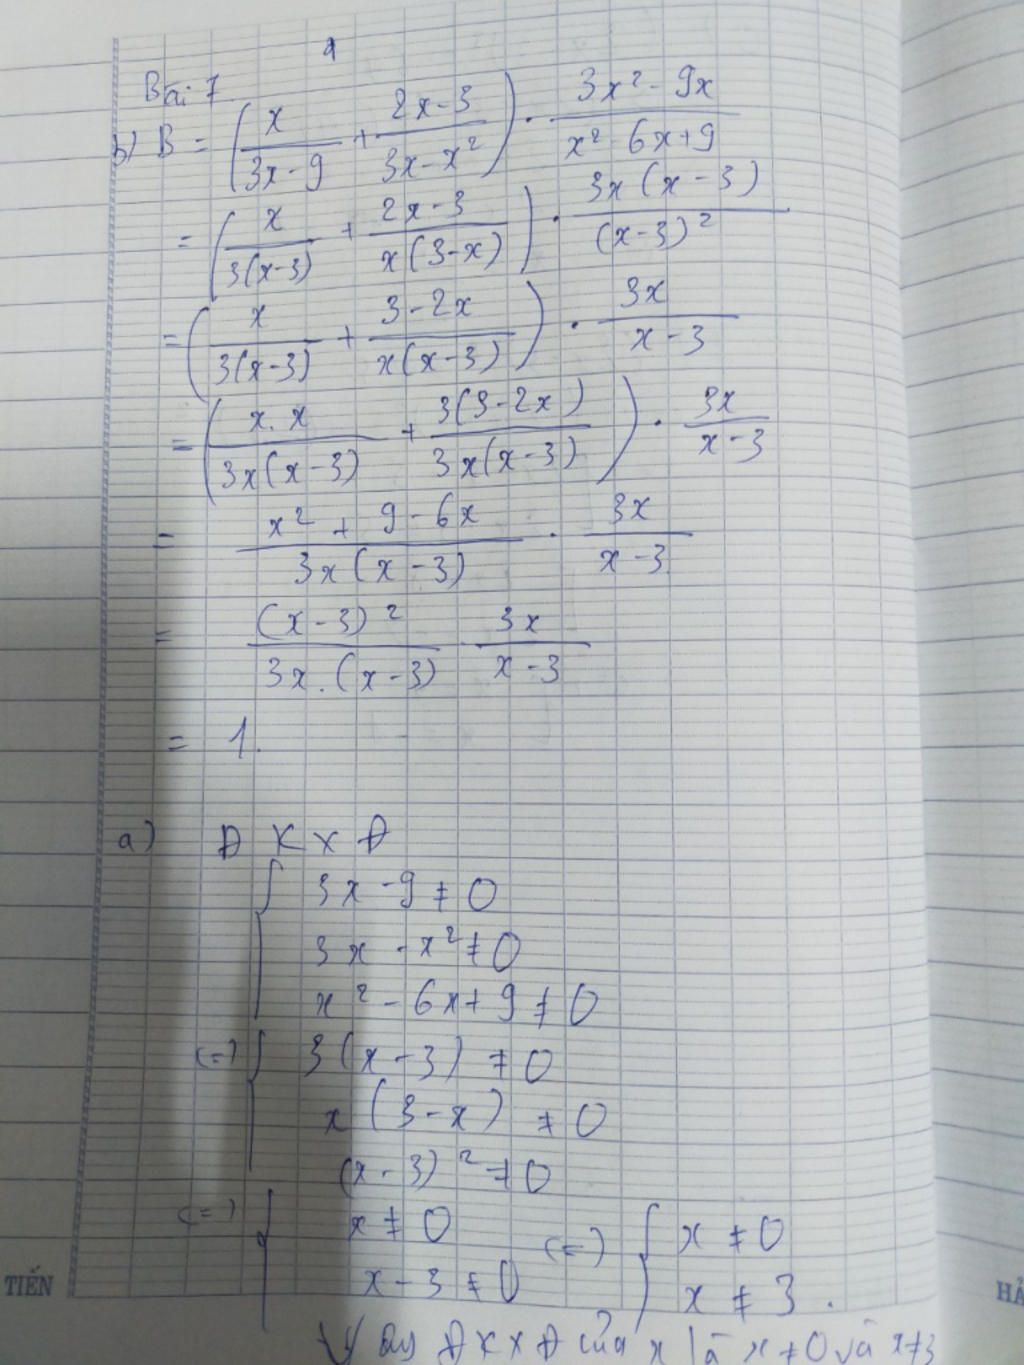 Bài 7
b) B = (x/(3x-9) + (2x-3)/(3x-x²)) · (3x²-9x)/(x²-6x+9)
= (x/(3(x-3)) + (2x-3)/(x(3-x))) · (3x(x-3))/((x-3)²)
= (x/(3(x-3)) + (3-2x)/(x(x-3))) · 3x/(x-3)
= (x.x/(3x(x-3)) + 3(3-2x)/(3x(x-3))) · 3x/(x-3)
= (x²+9-6x)/(3x(x-3)) · 3x/(x-3)
= (x-3)²/(3x.(x-3)) · 3x/(x-3)
= 1.
a) ĐKXĐ
{ 3x-9≠0
3x-x²≠0
x²-6x+9≠0
(=) { 3(x-3)≠0
x(3-x)≠0
(x-3)²≠0
(=) { x≠0
x-3≠0
(=) { x≠0
x≠3.
Vậy ĐKXĐ của x là x≠0 và x≠3
TIẾN
HẢ